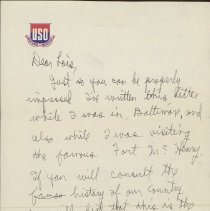 USO
Dear Lois,
Just so you can be properly
impressed I've written this letter
while I was in Baltimore, and
also while I was visiting
the famous Fort McHenry.
If you will consult the
history of our country
that this is the